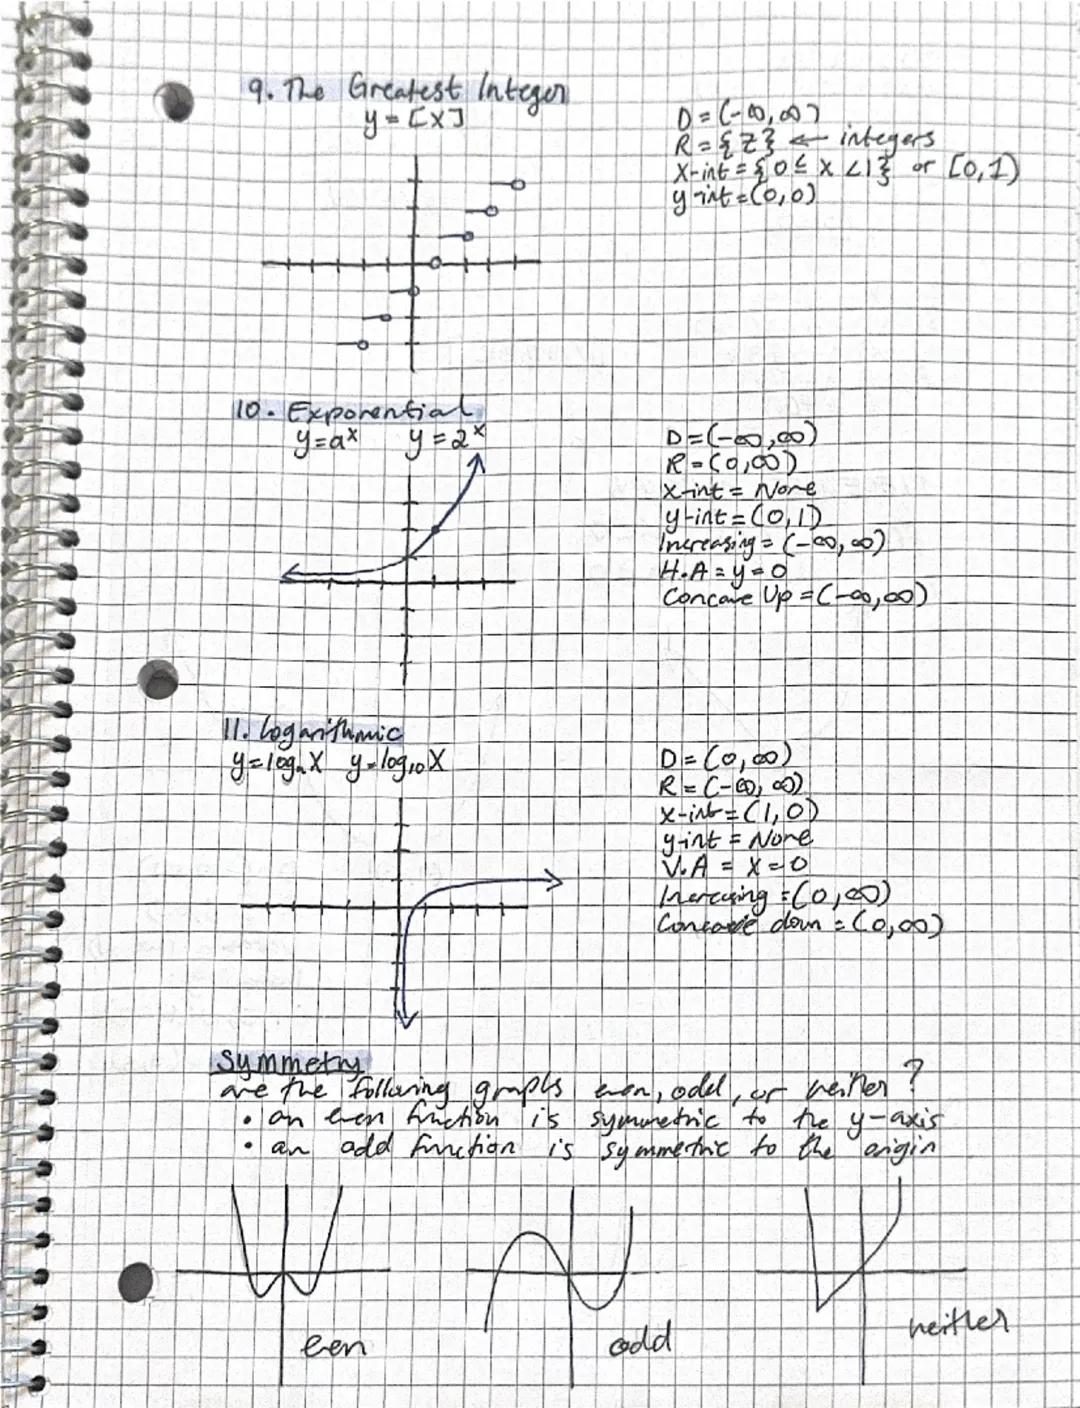 9. The Greatest Integer
y = [x]
D = (-∞, ∞)
R = {Z} ← integers
x-int = {0 ≤ x < 1} or [0, 1)
y-int = (0, 0)
10. Exponential
y = aˣ y = 2ˣ
D = (-∞, ∞)
R = (0, ∞)
x-int = None
y-int = (0, 1)
Increasing = (-∞, ∞)
H.A = y = 0
Concave Up = (-∞, ∞)
11. logarithmic
y = logₐX y = log₁₀X
D = (0, ∞)
R = (-∞, ∞)
x-int = (1, 0)
y-int = None
V.A = x = 0
Increasing = (0, ∞)
Concave down = (0, ∞)
Symmetry
are the following graphs even, odd, or neither?
• an even function is symmetric to the y-axis
• an odd function is symmetric to the origin
even odd neither